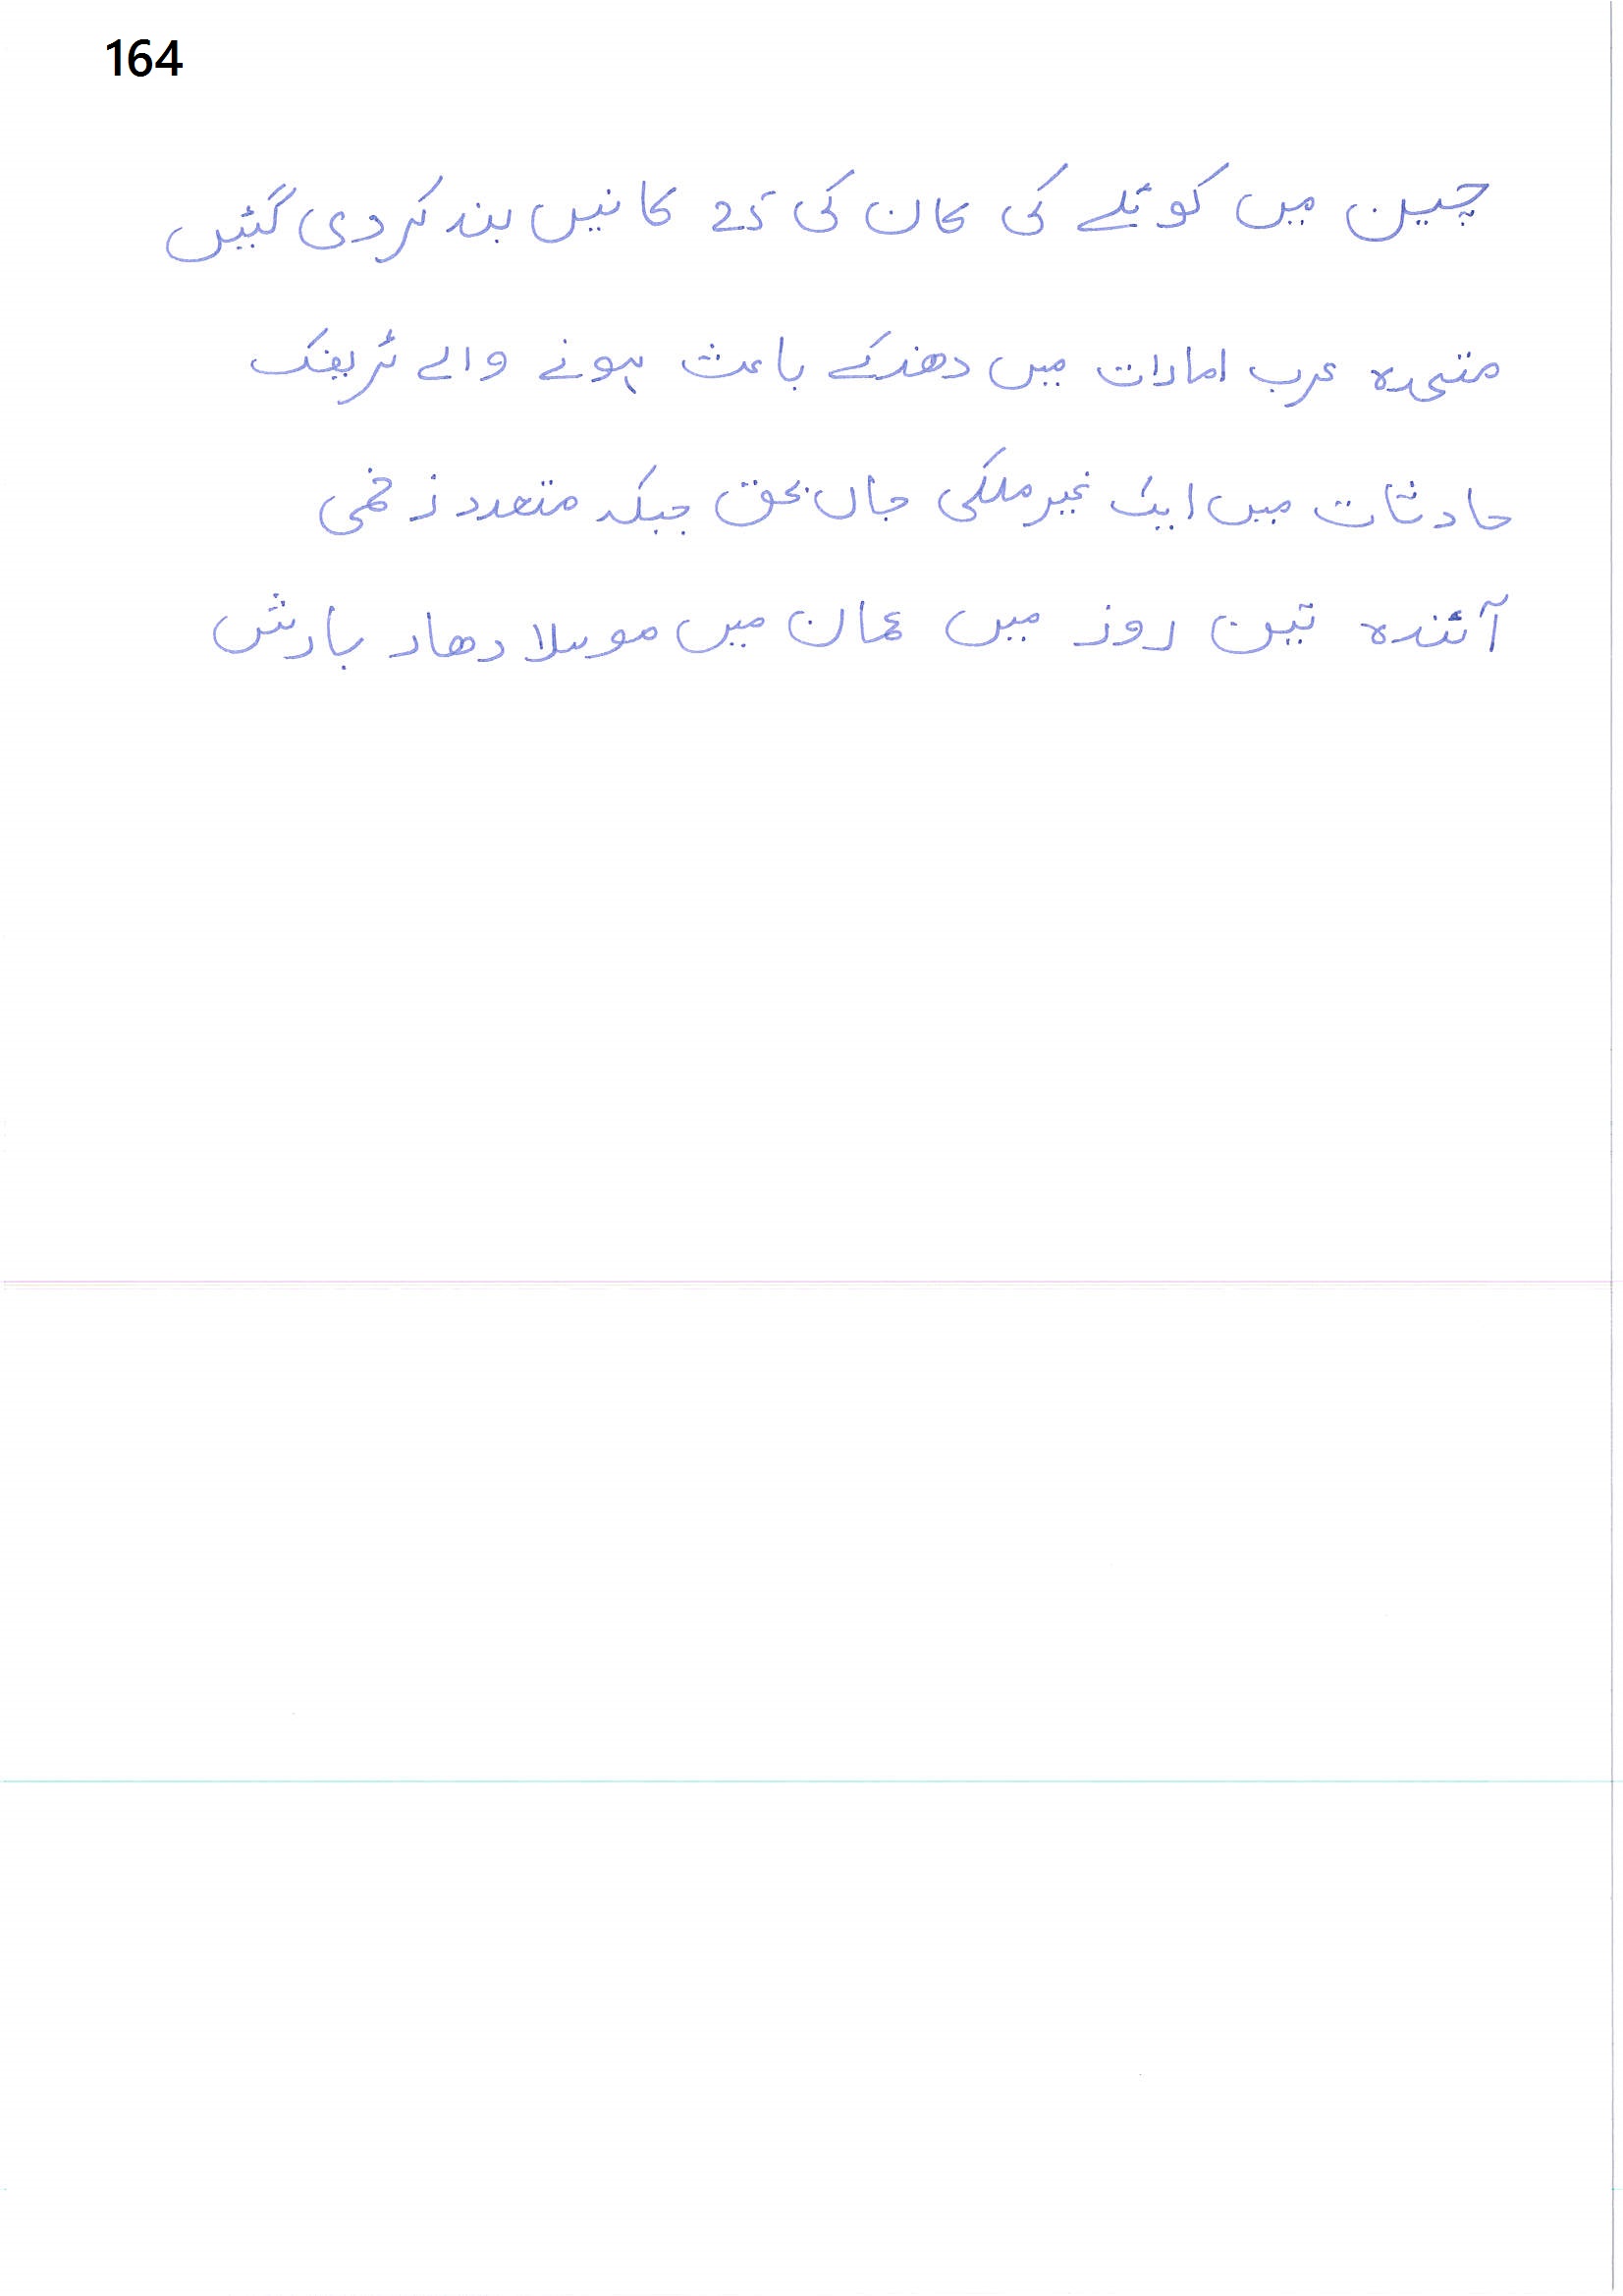 164
چین میں کوئلے کی کان کی 25 کانیں بند کر دی گئیں
متحدہ عرب امارات میں دھند کے باعث ہونے والے ٹریفک
حادثات میں ایک غیر ملکی جاں بحق جبکہ متعدد زخمی
آئندہ تین روز میں عمان میں موسلا دھار بارش